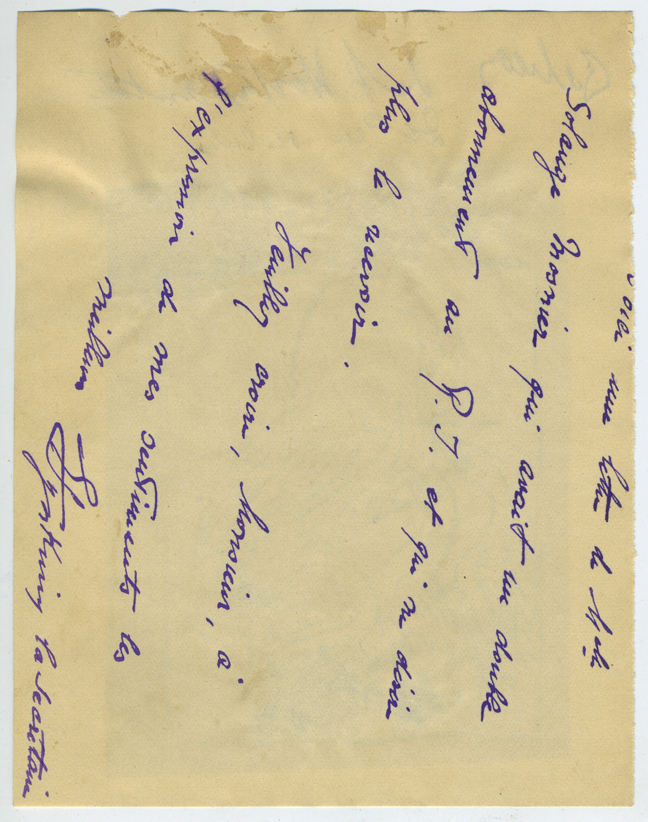 Voici une lettre de Mlle
Solange Mosnier qui avait un double
abonnement au P. J. et qui ne désire
plus le recevoir.
Veuillez croire, Monsieur, à
l'expression de mes sentiments les
meilleurs
la Secrétaire